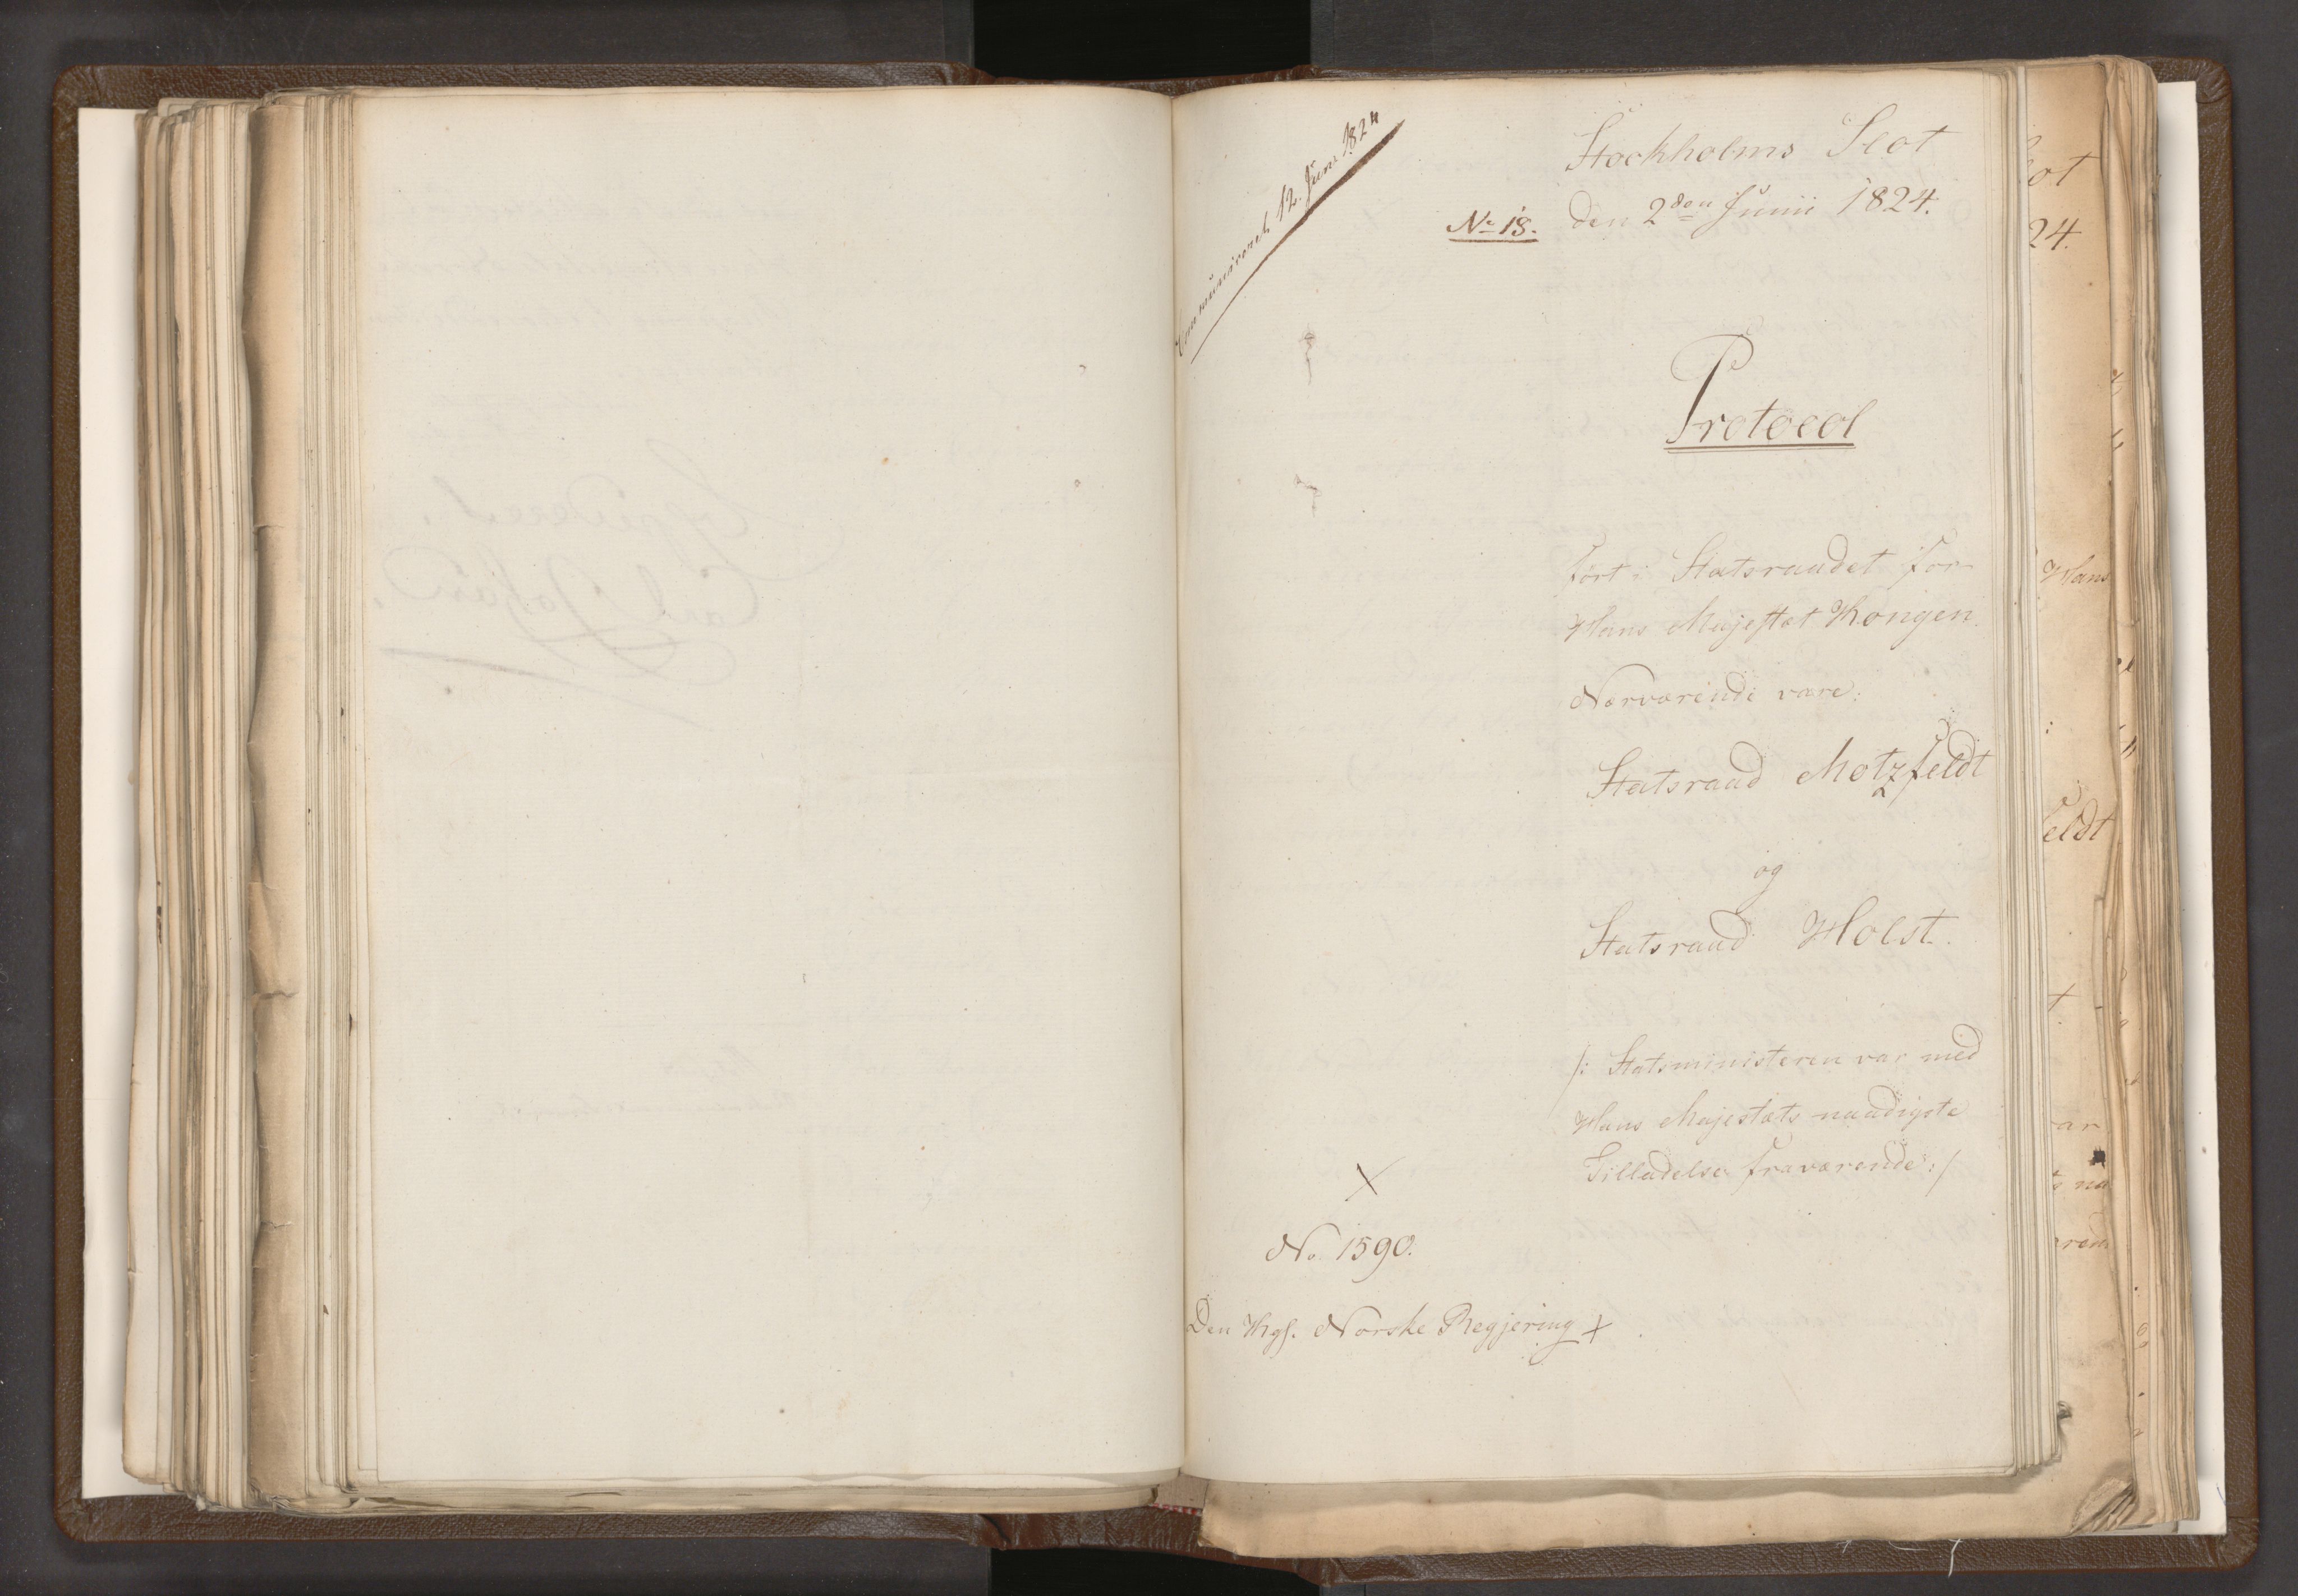 Communiceret 12. Juni 1824
Stockholms Slot
No 18.
den 2den Junii 1824.
Protocol
ført i Statsraadet for
Hans Majestæt Kongen.
Nærværende vare:
Statsraad Motzfeldt
og
Statsraad Holst.
/: Statsministeren var med
Hans Majestæts naadigste
Tilladelse fraværende :/
X
No. 1590.
Den Kgl. Norske Regjering X